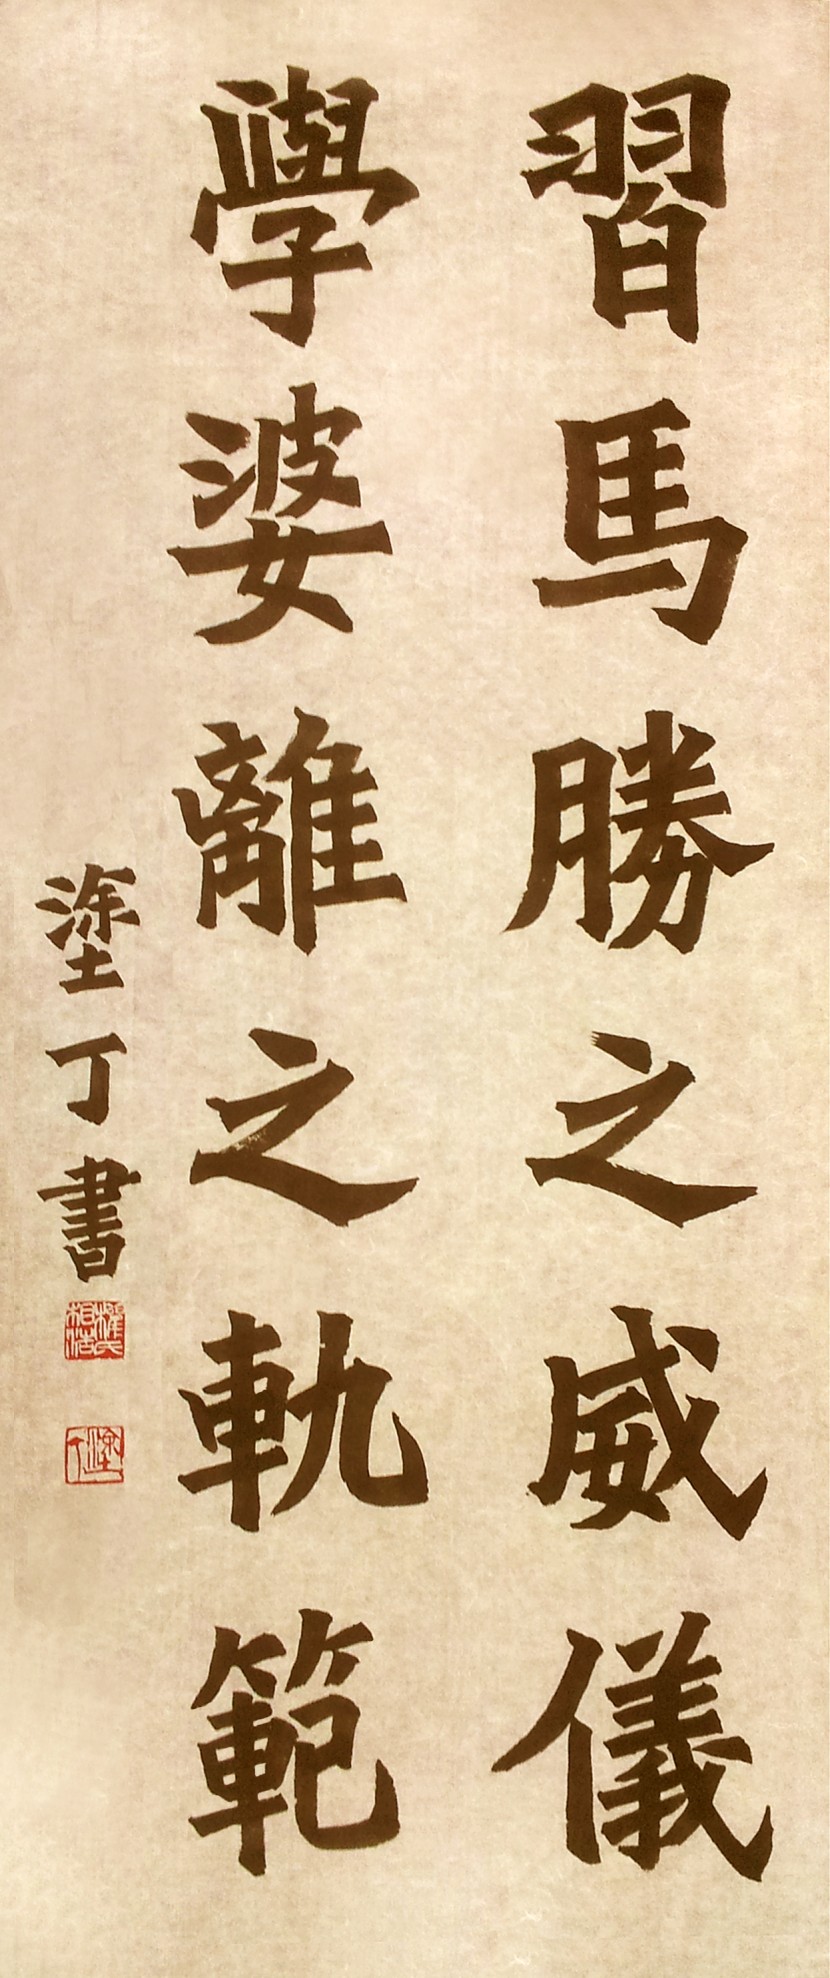 習馬勝之威儀
學婆離之軌範
塗丁書
塗丁